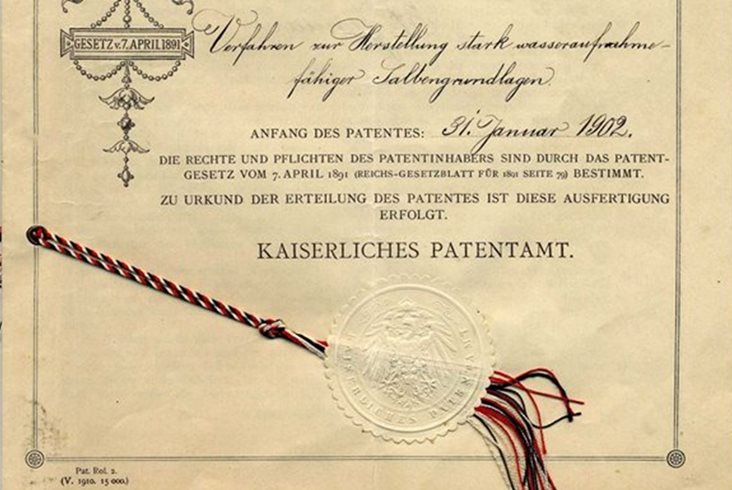 GESETZ v. 7. APRIL 1891
Verfahren zur Herstellung stark wasseraufnahme-
fähiger Salbengrundlagen.
ANFANG DES PATENTES: 31. Januar 1902.
DIE RECHTE UND PFLICHTEN DES PATENTINHABERS SIND DURCH DAS PATENT-
GESETZ VOM 7. APRIL 1891 (REICHS-GESETZBLATT FÜR 1891 SEITE 79) BESTIMMT.
ZU URKUND DER ERTEILUNG DES PATENTES IST DIESE AUSFERTIGUNG
ERFOLGT.
KAISERLICHES PATENTAMT.
KAISERLICHES PATENTAMT
Pat. Rol. 2.
(V. 1910. 15 000.)